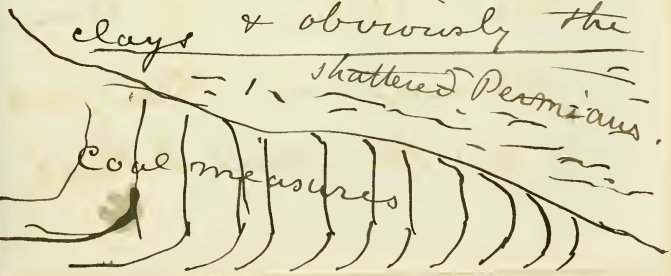 clays & obviously the
shattered Permians.
Coal measures